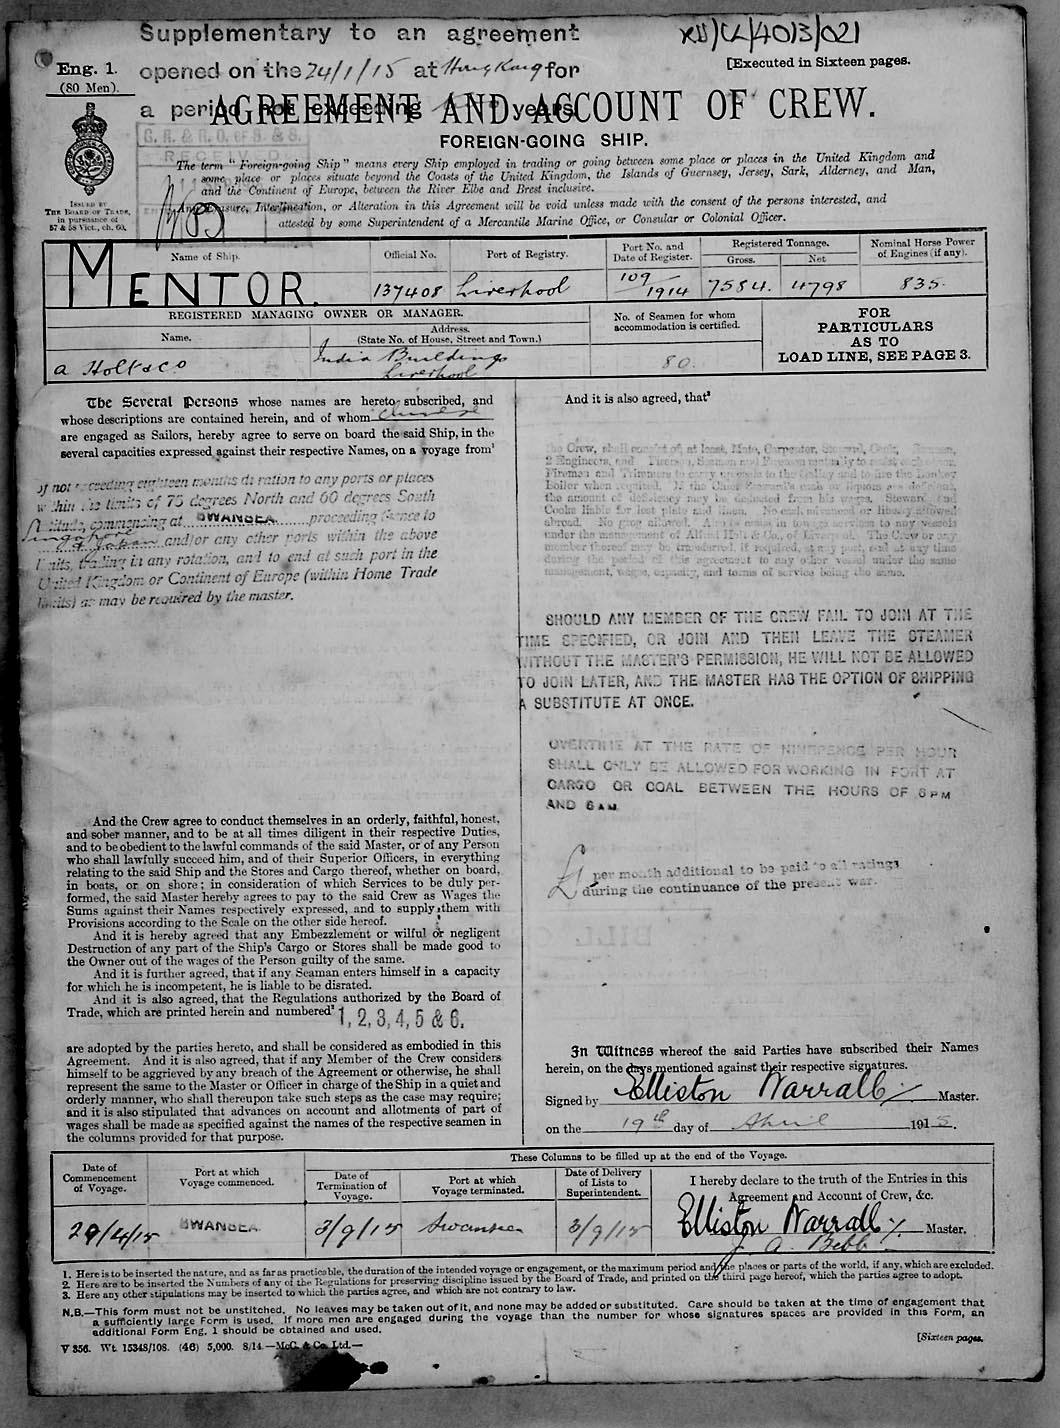 Supplementary to an agreement
opened on the 24/1/15 at Hong Kong for
a period not exceeding years
XII/CL/4013/021
[Executed in Sixteen pages.
Eng. 1.
(80 Men).
AGREEMENT AND ACCOUNT OF CREW.
FOREIGN-GOING SHIP.
The term "Foreign-going Ship" means every Ship employed in trading or going between some place or places in the United Kingdom and
some place or places situate beyond the Coasts of the United Kingdom, the Islands of Guernsey, Jersey, Sark, Alderney, and Man,
and the Continent of Europe, between the River Elbe and Brest inclusive.
Any Erasure, Interlineation, or Alteration in this Agreement will be void unless made with the consent of the persons interested, and
attested by some Superintendent of a Mercantile Marine Office, or Consular or Colonial Officer.
ISSUED BY
THE BOARD OF TRADE,
in pursuance of
57 & 58 Vict., ch. 60.
Name of Ship.
Official No.
Port of Registry.
Port No. and
Date of Register.
Registered Tonnage.
Gross.
Net
Nominal Horse Power
of Engines (if any).
MENTOR.
137408
Liverpool
109/1914
7584.
4798
835.
REGISTERED MANAGING OWNER OR MANAGER.
Name.
Address.
(State No. of House, Street and Town.)
No. of Seamen for whom
accommodation is certified.
FOR
PARTICULARS
AS TO
LOAD LINE, SEE PAGE 3.
A Holt & Co
India Buildings
Liverpool
80.
The Several Persons whose names are hereto subscribed, and
whose descriptions are contained herein, and of whom Chinese
are engaged as Sailors, hereby agree to serve on board the said Ship, in the
several capacities expressed against their respective Names, on a voyage from¹
of not exceeding eighteen months duration to any ports or places
within the limits of 75 degrees North and 60 degrees South
latitude, commencing at SWANSEA proceeding thence to
Singapore
& Japan and/or any other ports within the above
limits, trading in any rotation, and to end at such port in the
United Kingdom or Continent of Europe (within Home Trade
limits) as may be required by the master.
And the Crew agree to conduct themselves in an orderly, faithful, honest,
and sober manner, and to be at all times diligent in their respective Duties,
and to be obedient to the lawful commands of the said Master, or of any Person
who shall lawfully succeed him, and of their Superior Officers, in everything
relating to the said Ship and the Stores and Cargo thereof, whether on board,
in boats, or on shore; in consideration of which Services to be duly per-
formed, the said Master hereby agrees to pay to the said Crew as Wages the
Sums against their Names respectively expressed, and to supply them with
Provisions according to the Scale on the other side hereof.
And it is hereby agreed that any Embezzlement or wilful or negligent
Destruction of any part of the Ship's Cargo or Stores shall be made good to
the Owner out of the wages of the Person guilty of the same.
And it is further agreed, that if any Seaman enters himself in a capacity
for which he is incompetent, he is liable to be disrated.
And it is also agreed, that the Regulations authorized by the Board of
Trade, which are printed herein and numbered² 1, 2, 3, 4, 5 & 6.
are adopted by the parties hereto, and shall be considered as embodied in this
Agreement. And it is also agreed, that if any Member of the Crew considers
himself to be aggrieved by any breach of the Agreement or otherwise, he shall
represent the same to the Master or Officer in charge of the Ship in a quiet and
orderly manner, who shall thereupon take such steps as the case may require;
and it is also stipulated that advances on account and allotments of part of
wages shall be made as specified against the names of the respective seamen in
the columns provided for that purpose.
And it is also agreed, that³
the Crew, shall consist of, at least, Mate, Carpenter, Steward, Cook,
2 Engineers, and
Firemen and Trimmers
Boiler when required.
the amount of deficiency may be deducted from his wages. Steward and
Cooks liable for lost plate and linen. No cash advanced or liberty allowed
abroad. No grog allowed.
under the management of Alfred Holt & Co., of Liverpool. The Crew or any
member thereof may be transferred, if required, at any port, and at any time
during the period of this agreement to any other vessel under the same
management, wages, capacity, and terms of service being the same.
SHOULD ANY MEMBER OF THE CREW FAIL TO JOIN AT THE
TIME SPECIFIED, OR JOIN AND THEN LEAVE THE STEAMER
WITHOUT THE MASTER'S PERMISSION, HE WILL NOT BE ALLOWED
TO JOIN LATER, AND THE MASTER HAS THE OPTION OF SHIPPING
A SUBSTITUTE AT ONCE.
OVERTIME AT THE RATE OF NINEPENCE PER HOUR
SHALL ONLY BE ALLOWED FOR WORKING IN PORT AT
CARGO OR COAL BETWEEN THE HOURS OF 6 PM
AND 6 AM
£1 per month additional to be paid to all ratings
during the continuance of the present war.
In Witness whereof the said Parties have subscribed their Names
herein, on the days mentioned against their respective signatures.
Signed by Elliston Warrall Master.
on the 19th day of April 1915.
These Columns to be filled up at the end of the Voyage.
Date of
Commencement
of Voyage.
Port at which
Voyage commenced.
Date of
Termination of
Voyage.
Port at which
Voyage terminated.
Date of Delivery
of Lists to
Superintendent.
I hereby declare to the truth of the Entries in this
Agreement and Account of Crew, &c.
29/4/15
SWANSEA
3/9/15
Swansea
3/9/15
Elliston Warrall Master.
J. A. Bebb
1. Here is to be inserted the nature, and as far as practicable, the duration of the intended voyage or engagement, or the maximum period and the places or parts of the world, if any, which are excluded.
2. Here are to be inserted the Numbers of any of the Regulations for preserving discipline issued by the Board of Trade, and printed on the third page hereof, which the parties agree to adopt.
3. Here any other stipulations may be inserted to which the parties agree, and which are not contrary to law.
N.B.—This form must not be unstitched. No leaves may be taken out of it, and none may be added or substituted. Care should be taken at the time of engagement that
a sufficiently large Form is used. If more men are engaged during the voyage than the number for whose signatures spaces are provided in this Form, an
additional Form Eng. 1 should be obtained and used.
[Sixteen pages.
V 356. Wt. 15348/108. (46) 5,000. 8/14.—McC. & Co. Ltd.—